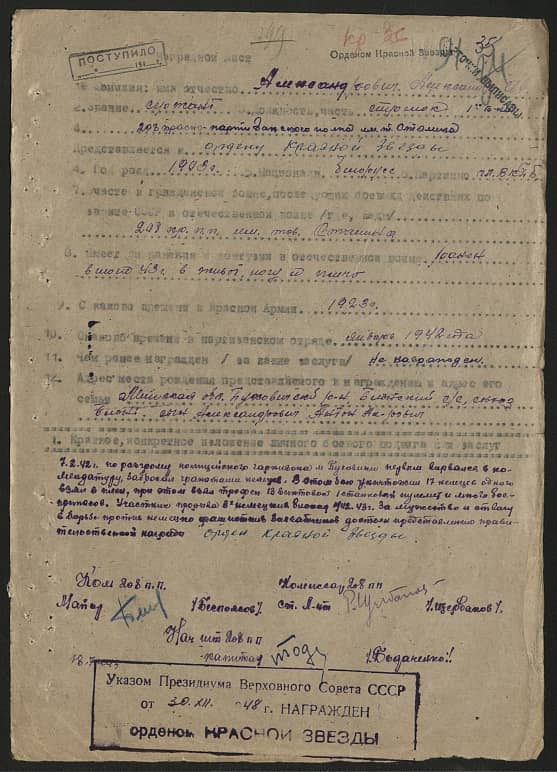 ПОСТУПИЛО
35
Орденом Красной Звезды
наградной лист
имя отчество Александрович
2. звание сержант часть стрелок
208 партизанского полка им. т. Сталина
Представляется к ордену Красной Звезды
4. Год рожд. 1923г. белорус чл. ВКП/б
7. участие в гражданской войне, последующих боевых действиях по
защите СССР и отечественной войне /где, когда/
208 п.п. им. тов. Сталина
8. Имеет ли ранения и контузии в отечественной войне ранен
в 43г. в живот, ногу и
9. С какого времени в Красной Армии. 1923г.
10. С какого времени в партизанском отряде. январь 1942 года
11. Чем ранее награжден /за какие заслуги/ не награжден.
12. Адрес места рождения представляемого к награждению и адрес его
семьи Минская обл. Пуховичский р-н с/с,
Александрович
1. Краткое, конкретное изложение личного боевого подвига или заслуг
7.2.42г. по разгрому полицейского гарнизона м Пуховичи первым ворвался в ко-
мендатуру, забросал гранатами немцев. В этом бою уничтожил 17 немцев одного
взял в плен, при этом взял трофеи 13 винтовок 1 станковый пулемет и много бое-
припасов. Участник 1942. 43г. За мужество и отвагу
в борьбе против немецко фашистких захватчиков достоин представлению прави-
тельственной награде орден Красной Звезды
Ком 208 п.п. Комиссар 208 п п
Майор /Беспоясов/ ст. л-нт /Щербаков/.
Нач шт 208 п п
капитан
Указом Президиума Верховного Совета СССР
от 30.XII. 1948 г. НАГРАЖДЕН
орденом КРАСНОЙ ЗВЕЗДЫ